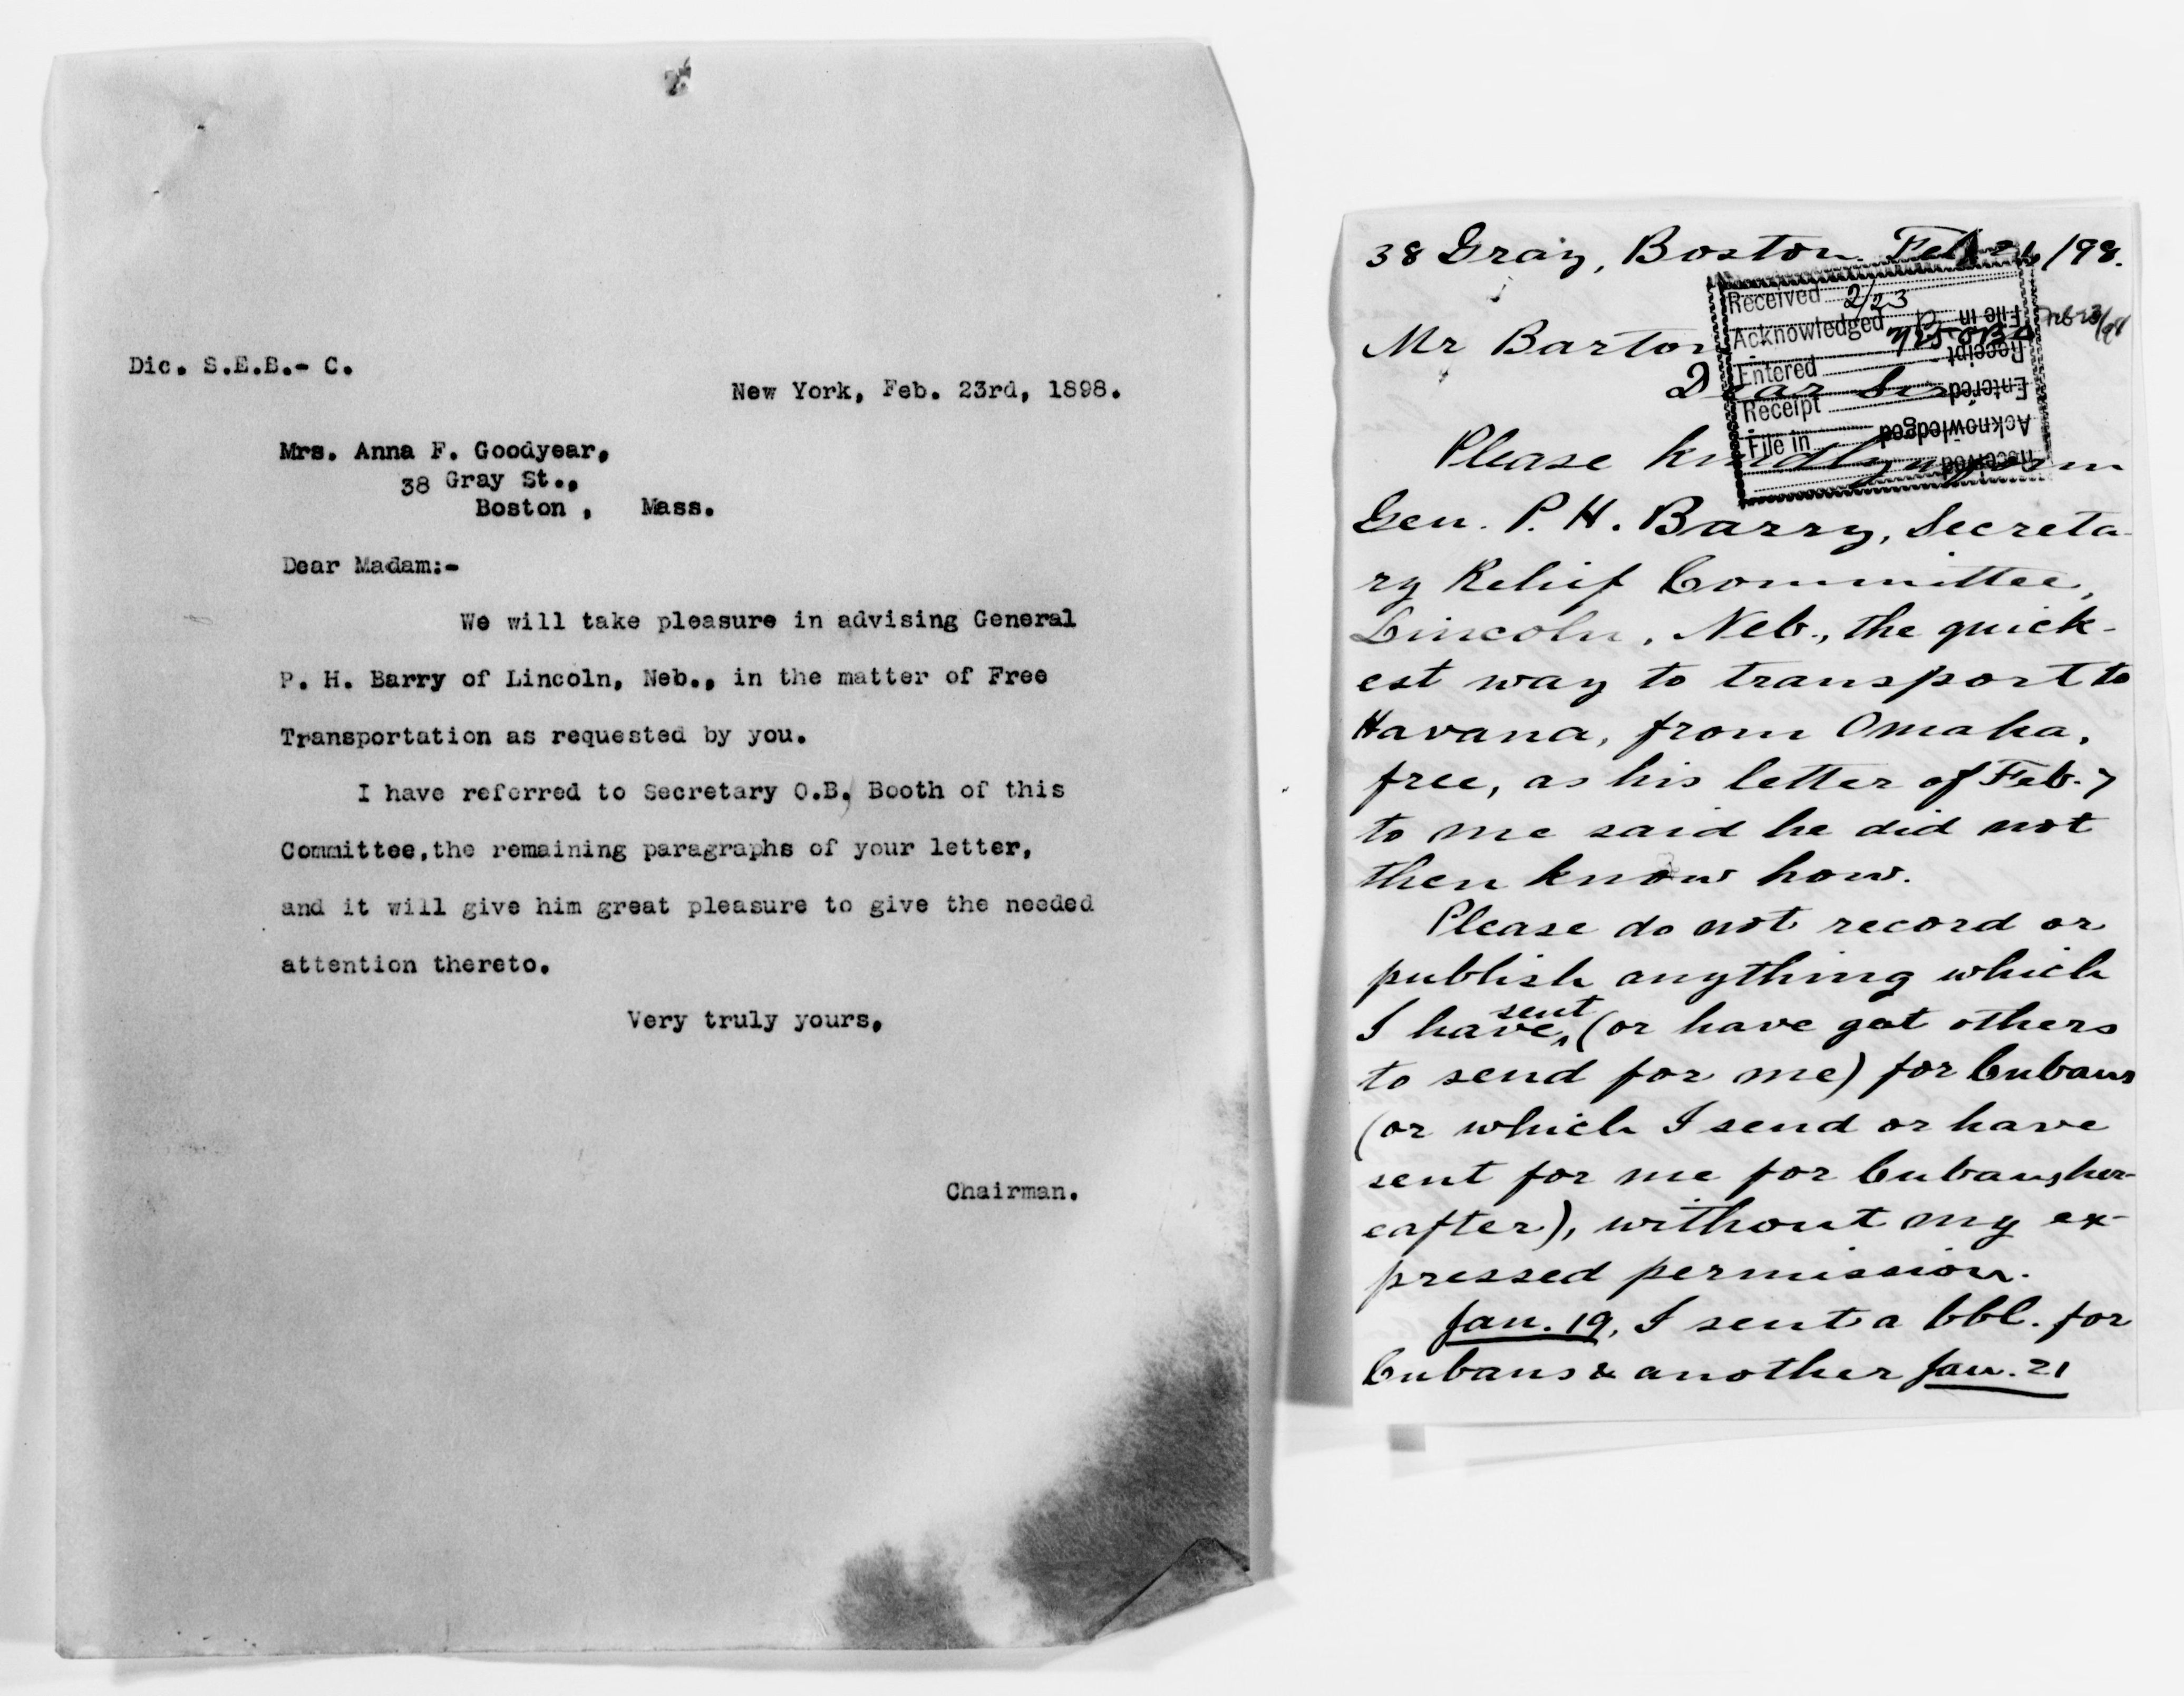 Dic. S.E.B.- C.
New York, Feb. 23rd, 1898.
Mrs. Anna F. Goodyear,
38 Gray St.,
Boston , Mass.
Dear Madam:-
We will take pleasure in advising General
P. H. Barry of Lincoln, Neb., in the matter of Free
Transportation as requested by you.
I have referred to Secretary O.B. Booth of this
Committee,the remaining paragraphs of your letter,
and it will give him great pleasure to give the needed
attention thereto.
Very truly yours,
Chairman.
38 Gray, Boston. Feb /98.
Received 2/23
Acknowledged
Entered
Receipt
File in
Received
Acknowledged
Entered
Receipt
File in
Mr Barton
Dear Sir
Please kindly inform
Gen. P. H. Barry, Secreta-
ry Relief Committee,
Lincoln, Neb., the quick-
est way to transport to
Havana, from Omaha,
free, as his letter of Feb. 7
to me said he did not
then know how.
Please do not record or
publish anything which
I have, sent (or have got others
to send for me) for Cubans
(or which I send or have
sent for me for Cubans, her-
eafter), without my ex-
pressed permission.
Jan. 19, I sent a bbl. for
Cubans & another Jan. 21